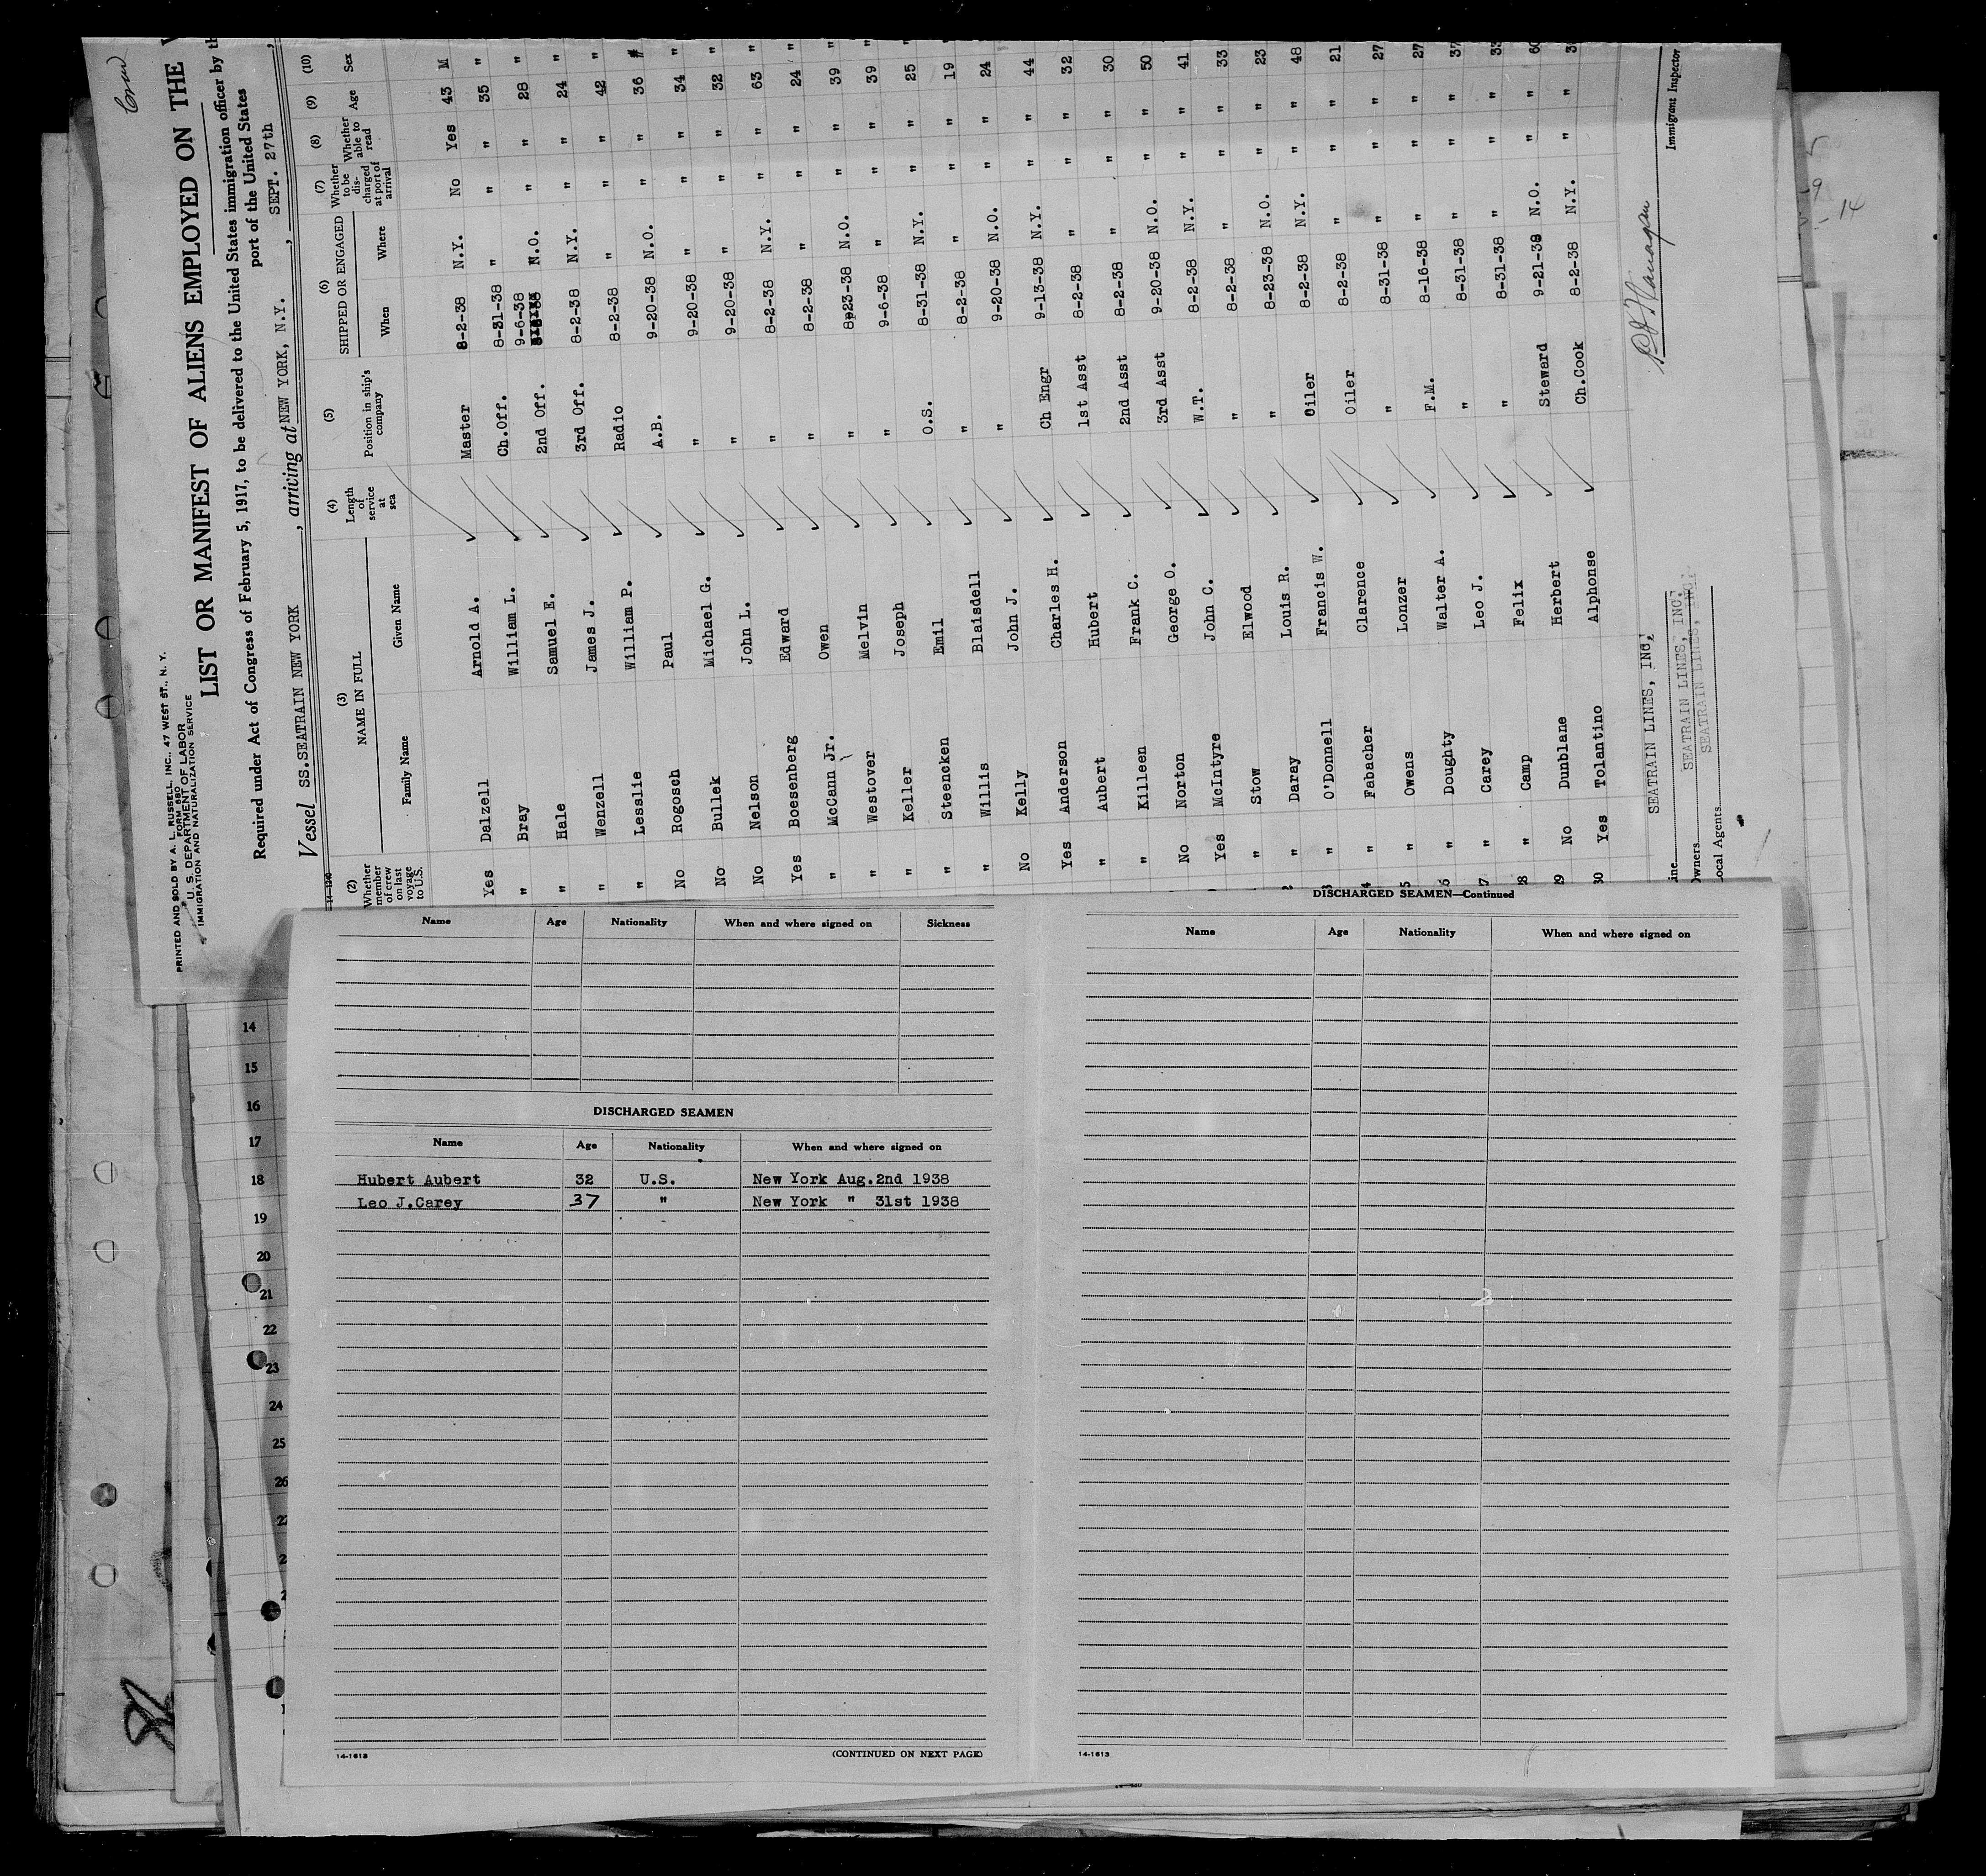 PRINTED AND SOLD BY A. L. RUSSELL, INC., 47 WEST ST., N. Y.
FORM 680
U. S. DEPARTMENT OF LABOR
IMMIGRATION AND NATURALIZATION SERVICE
LIST OR MANIFEST OF ALIENS EMPLOYED ON THE
Required under Act of Congress of February 5, 1917, to be delivered to the United States immigration officer by
port of the United States
Vessel SS.SEATRAIN NEW YORK, arriving at NEW YORK, N.Y., SEPT. 27th,
(2) (3) (4) (5) (6) (7) (8) (9) (10)
Whether member of crew on last voyage to U.S. NAME IN FULL Family Name Given Name Length of service at sea Position in ship's company SHIPPED OR ENGAGED When Where Whether to be discharged at port of arrival Whether able to read Age Sex
Yes Dalzell Arnold A. Master 8-2-38 N.Y. No Yes 43 M
" Bray William L. Ch.Off. 8-31-38 " " " 35 "
" Hale Samuel E. 2nd Off. 9-6-38 N.O. " " 28 "
" Wenzell James J. 3rd Off. 8-2-38 N.Y. " " 24 "
" Lesslie William P. Radio 8-2-38 " " " 42 "
No Rogosch Paul A.B. 9-20-38 N.O. " " 36 "
No Bullek Michael G. " 9-20-38 " " " 34 "
No Nelson John L. " 9-20-38 " " " 32 "
Yes Boesenberg Edward " 8-2-38 N.Y. " " 63 "
" McCann Jr. Owen " 8-2-38 " " " 24 "
" Westover Melvin " 8-23-38 N.O. " " 39 "
" Keller Joseph " 9-6-38 " " " 39 "
" Steencken Emil O.S. 8-31-38 N.Y. " " 25 "
" Willis Blaisdell " 8-2-38 " " " 19 "
No Kelly John J. " 9-20-38 N.O. " " 24 "
Yes Anderson Charles H. Ch Engr 9-13-38 N.Y. " " 44
" Aubert Hubert 1st Asst 8-2-38 " " " 32
" Killeen Frank C. 2nd Asst 8-2-38 " " " 30
No Norton George O. 3rd Asst 9-20-38 N.O. " " 50
Yes McIntyre John C. W.T. 8-2-38 N.Y. " " 41
" Stow Elwood " 8-2-38 " " " 33
" Daray Louis R. " 8-23-38 N.O. " " 23
" O'Donnell Francis W. Oiler 8-2-38 N.Y. " " 48
" Fabacher Clarence Oiler 8-2-38 " " " 21
" Owens Lonzer " 8-31-38 " " " 27
" Doughty Walter A. F.M. 8-16-38 " " " 27
" Carey Leo J. " 8-31-38 " " " 37
" Camp Felix " 8-31-38 " " " 33
No Dunblane Herbert Steward 9-21-38 N.O. " " 60
30 Yes Tolantino Alphonse Ch.Cook 8-2-38 N.Y. " "
SEATRAIN LINES, INC.
SEATRAIN LINES, INC.
Owners SEATRAIN LINES, INC.
Local Agents
Immigrant Inspector
Name Age Nationality When and where signed on Sickness
DISCHARGED SEAMEN
Name Age Nationality When and where signed on
Hubert Aubert 32 U.S. New York Aug.2nd 1938
Leo J.Carey 37 " New York " 31st 1938
14-1613 (CONTINUED ON NEXT PAGE)
DISCHARGED SEAMEN—Continued
Name Age Nationality When and where signed on
14-1613
14
15
16
17
18
19
20
21
22
23
24
25
26